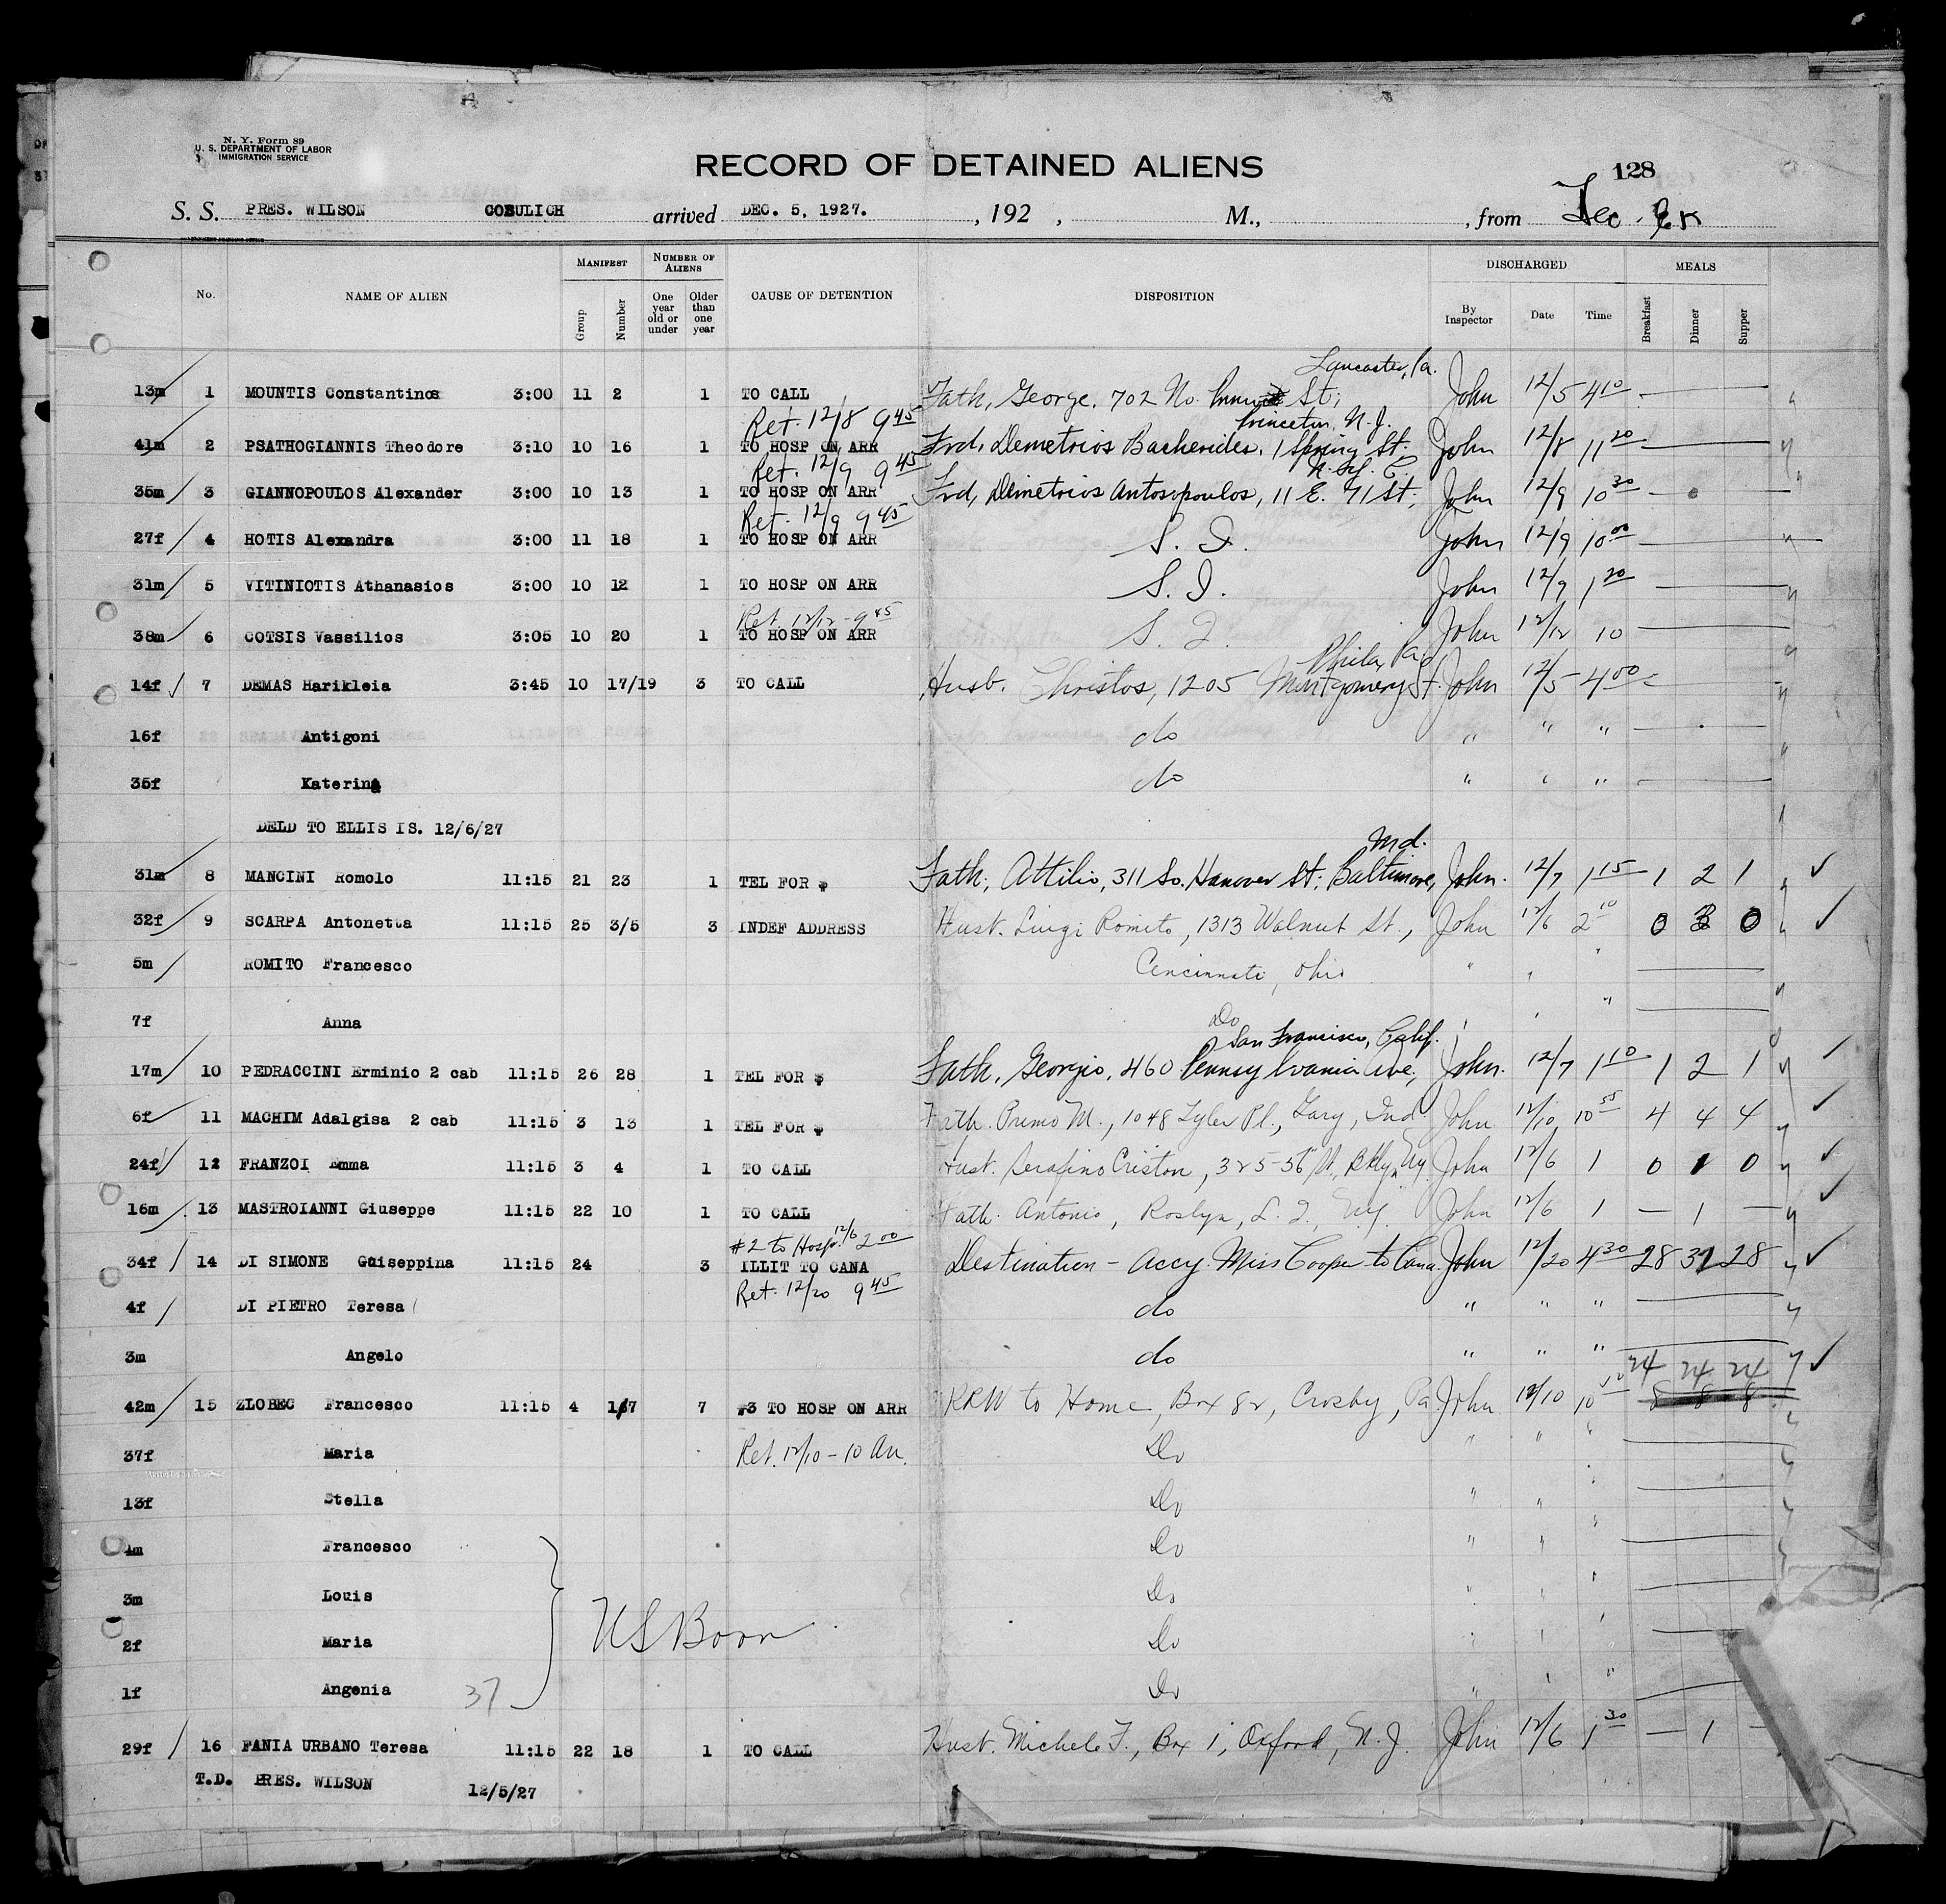 N. Y. Form 89
U. S. DEPARTMENT OF LABOR
IMMIGRATION SERVICE
RECORD OF DETAINED ALIENS
128
S. S. PRES. WILSON COSULICH arrived DEC. 5, 1927. , 192 , M., , from
MANIFEST NUMBER OF ALIENS DISCHARGED MEALS
No. NAME OF ALIEN Group Number One year old or under Older than one year CAUSE OF DETENTION DISPOSITION By Inspector Date Time Breakfast Dinner Supper
Lancaster, Pa.
13m 1 MOUNTIS Constantinos 3:00 11 2 1 TO CALL Fath, George, 702 No. St; John 12/5 4 10
Ret. 12/8 9 45 Princeton, N.J.
41m 2 PSATHOGIANNIS Theodore 3:10 10 16 1 TO HOSP ON ARR Frd, Demetrios Bacherides, 1 Spring St; John 12/8 11 20
Ret. 12/9 9 45 N.Y. C.
35m 3 GIANNOPOULOS Alexander 3:00 10 13 1 TO HOSP ON ARR Frd, Demetrios Antosopoulos, 11 E. 71 St; John 12/9 10 30
Ret. 12/9 9 45
27f 4 HOTIS Alexandra 3:00 11 18 1 TO HOSP ON ARR S. I. John 12/9 10 00
31m 5 VITINIOTIS Athanasios 3:00 10 12 1 TO HOSP ON ARR S. I. John 12/9 1 20
Ret. 12/12 - 9 45
38m 6 COTSIS Vassilios 3:05 10 20 1 TO HOSP ON ARR S. I. John 12/12 10
Phila, Pa.
14f 7 DEMAS Harikleia 3:45 10 17/19 3 TO CALL Husb. Christos, 1205 Montgomery St. John 12/5 4 00
16f Antigoni do " " "
35f Katerina do " " "
DELD TO ELLIS IS. 12/6/27
Md.
31m 8 MANCINI Romolo 11:15 21 23 1 TEL FOR $ Fath; Attilio, 311 So. Hanover St; Baltimore, John. 12/7 1 15 1 2 1
32f 9 SCARPA Antonetta 11:15 25 3/5 3 INDEF ADDRESS Hust. Luigi Romito, 1313 Walnut St., John 12/6 2 10 0 3 0
5m ROMITO Francesco Cencinnati, Ohio " " "
7f Anna Do " " "
San Francisco, Calif.
17m 10 PEDRACCINI Erminio 2 cab 11:15 26 28 1 TEL FOR $ Fath, Georgio, 460 Pennsylvania Ave, John. 12/7 1 10 1 2 1
6f 11 MACHIM Adalgisa 2 cab 11:15 3 13 1 TEL FOR $ Fath. Primo M., 1048 Tyler Pl., Gary, Ind John 12/10 10 55 4 4 4
24f 12 FRANZOI Emma 11:15 3 4 1 TO CALL Hust. Serafino Criston, 325-56" St, Bklyn, Ny. John 12/6 1 0 1 0
16m 13 MASTROIANNI Giuseppe 11:15 22 10 1 TO CALL Fath. Antonio, Roslyn, L. I., N.Y. John 12/6 1 — 1 —
#2 to Hosp. 12/6 2 00
34f 14 DI SIMONE Guiseppina 11:15 24 3 ILLIT TO CANA Destination - Accy. Miss Cooper to Cana. John 12/20 4 30 28 31 28
Ret. 12/20 9 45
4f DI PIETRO Teresa do " " "
3m Angelo do " " "
24 24 24
42m 15 ZLOBEC Francesco 11:15 4 1/7 7 #3 TO HOSP ON ARR RRW to Home, Box 82, Crosby, Pa John 12/10 10 8 8 8
37f Maria Ret. 12/10 - 10 Am. Do " " "
13f Stella Do " " "
4m Francesco Do " " "
3m Louis Do " " "
US Born
2f Maria Do " " "
1f Angenia 37 Do " " "
29f 16 FANIA URBANO Teresa 11:15 22 18 1 TO CALL Hust. Michele F., Box 1, Oxford, N. J. John 12/6 1 30 — 1 —
T.D. PRES. WILSON 12/5/27